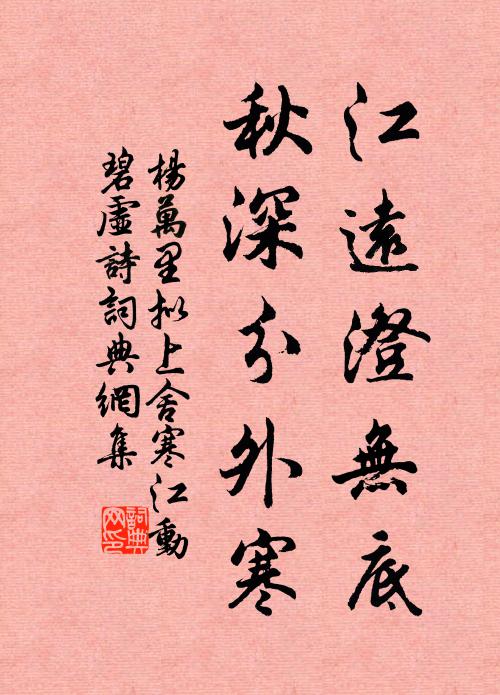 江遠澄無底
秋深分外寒
楊萬里拟上舍寒江動
碧虛詩詞典網集
詞典网印